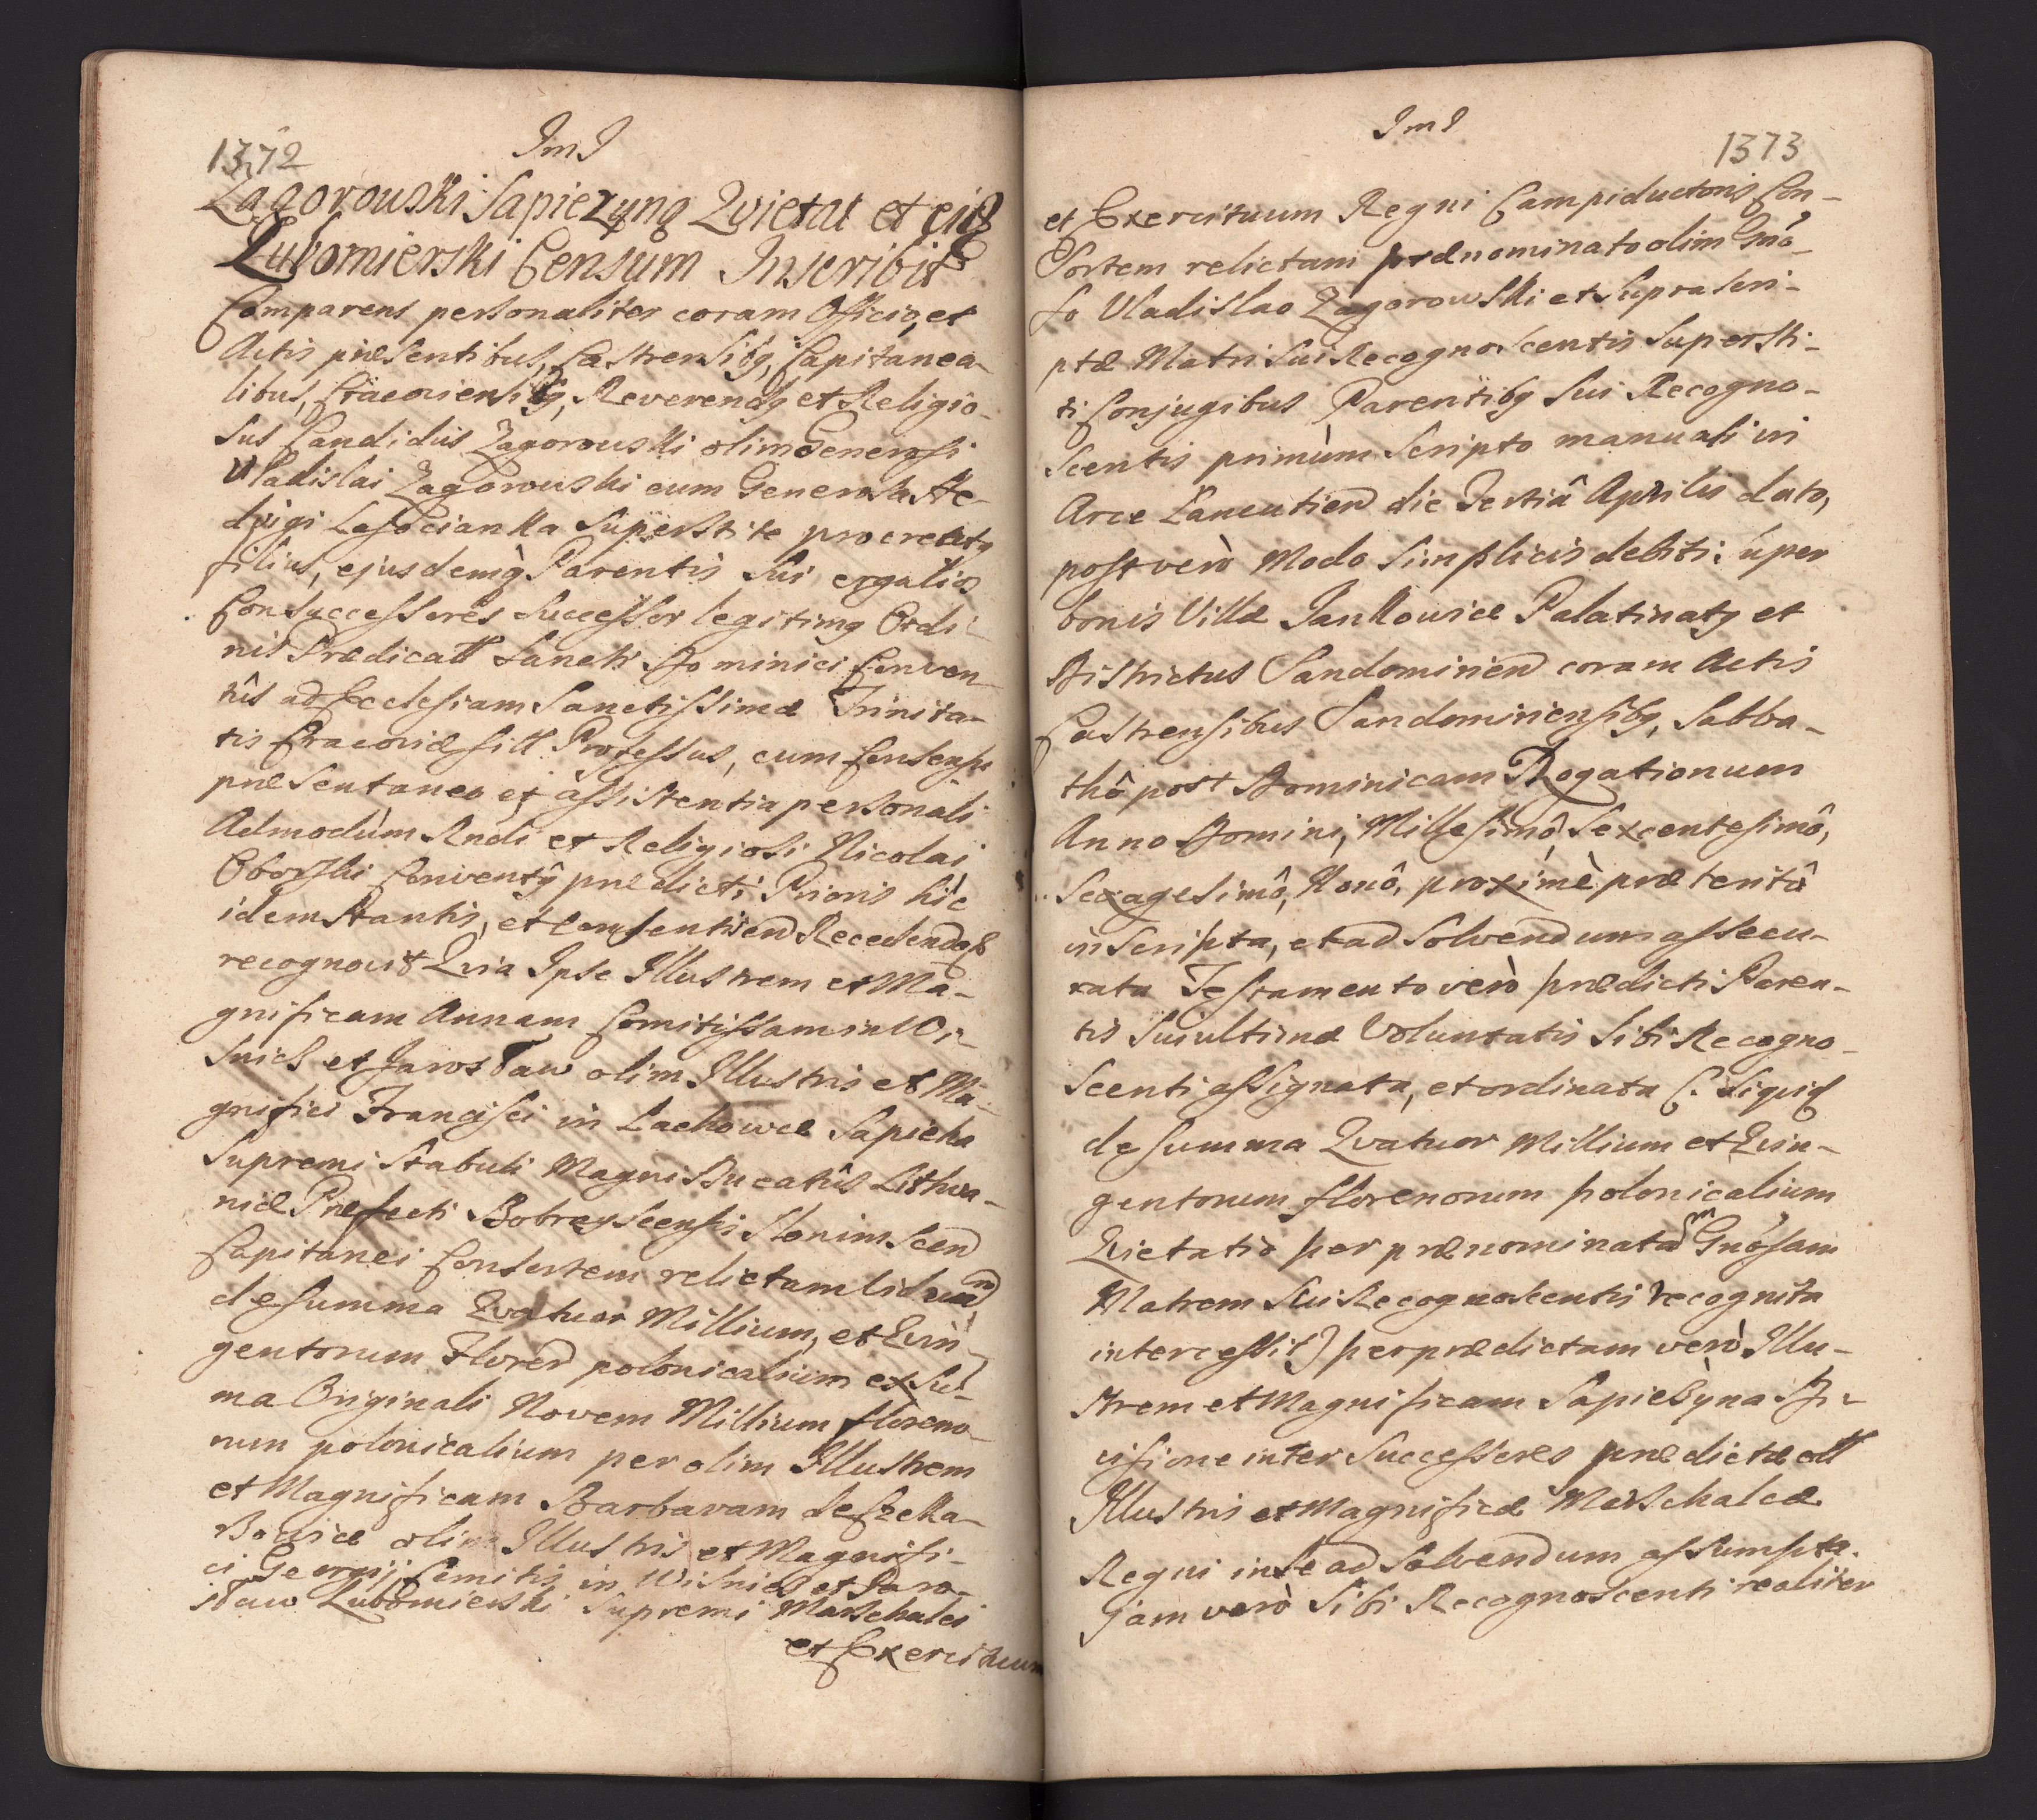 1372
ImI
Zagorowski Sapiezyną Qvietat et eiq
Lubomierski Censum Inscribit
Comparens personaliter coram Officio, et
Actis præsentibus, Castrensibq, Capitanea-
libus, Cracoviensibq, Reverendq et Religio-
sus Candidus Zagorowski olim Generosi
Vladislai Zagorowski cum Generosa He-
dvigi Lasocianka Superstite procreatq
filius, ejusdemq Parentis sui ergalios
Consuccessores Successor legitimq Ordi-
nis Prædicatt Sancti Dominici Conven-
tûs ad Ecclesiam Sanctissimæ Trinita-
tis Cracoviæ sitt Professus, cum Consensu
præsentaneo et assistentia personali
Admodùm Rndi et Religiosi Nicolai
Oborski Conventq prædicti Prioris hic
idem Stantis, et consentien Recedendoß
recognovit Qvia Ipse Illustrem et Ma-
gnificam Annam Comitissam in Wi-
snicz et Jarosław olim Illustris et Ma-
gnifici Francisci in Lachowce Sapieha
Supremi Stabuli Magni Ducatûs Lithva-
niæ Præfecti Bobreyscensis Slonimscen
Capitanei Consortem relictam viduam
de summa Qvatuor Millium, et Qvin-
gentorum Floren polonicalium ex Su-
ma Originali Novem Millium floreno-
rum polonicalium per olim Illustrem
et Magnificam Barbaram de
olim Illustris et Magnifi-
ci Georgij Comitis in Wisnicz et Jaro-
sław Lubomierski Supremi Marschalci
et Exercituum
ImI
1373
et Exercituum Regni Campiductoris Con-
sortem relictam prænominato olim Gnô-
so Vladislao Zagorowski et Suprascri-
ptæ Matri Sui Recognoscentis Supersti-
ti Conjugibus Parentibq Sui Recogno-
scentis primùm Scripto manuali in
Arce Łancutien die Tertiâ Aprilis dato,
post verò Modo Simplicis debiti super
bonis Villæ Jankowice Palatinatq et
Districtus Sandomirien coram Actis
Castrensibus Sandomiriensibq, Sabba-
thô post Dominicam Rogationum
Anno Domini, Millesimô, Sexcentesimô,
Sexagesimô, Nonô, proximè præteritô
inscripta, et ad Solvendum assecu-
rata Testamento verò prædicti Paren-
tis Sui ultimæ Voluntatis Sibi Recogno-
scenti assignata, et ordinata (. Siqui
de summa Qvatuor Millium et Qvin-
gentorum florenorum polonicalium
Qvietatio per prænominatam Gnôsam
Matrem Sui Recognoscentis recognita
intercessit) per prædictam verò Illu-
strem et Magnificam Sapiezyna Di-
visione inter Successores prædictæ ott
Illustris et Magnificæ Marschalcæ
Regni in se ad Solvendum assumpta.
jam verò Sibi Recognoscenti realiter